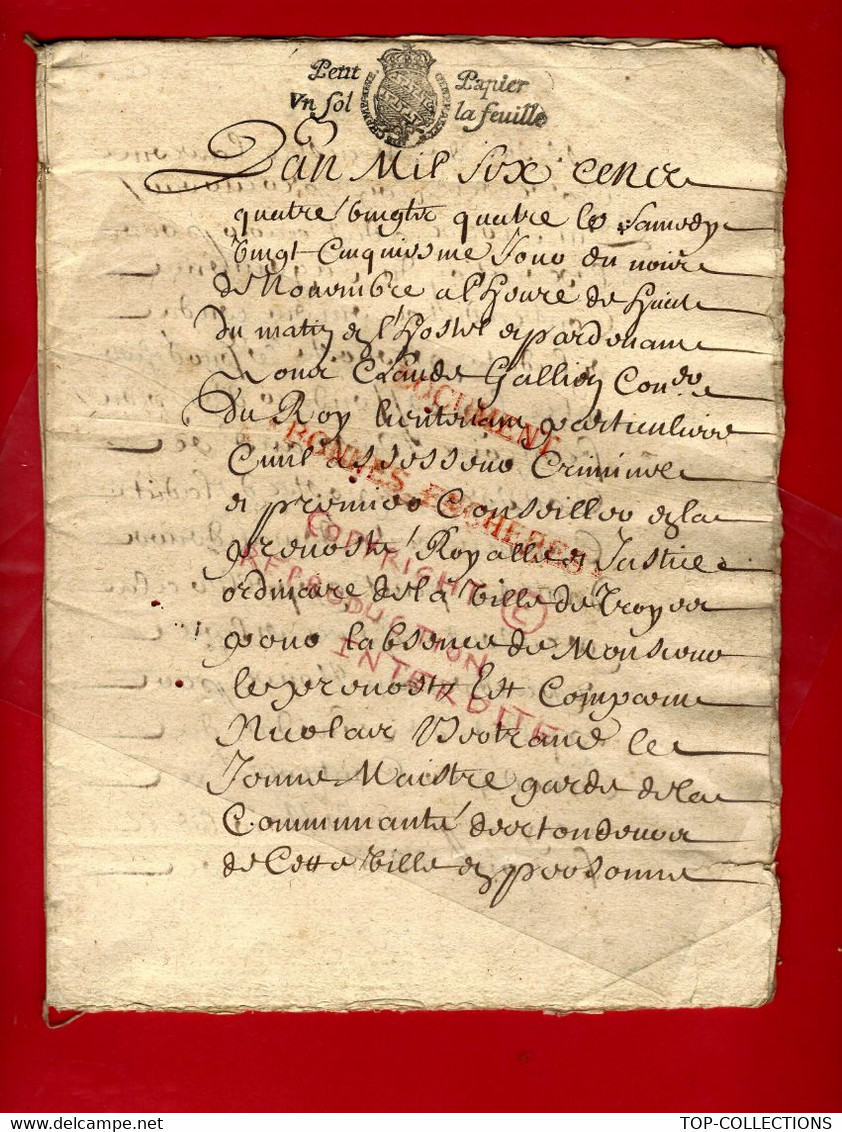 Petit Papier
Vn sol la feuille
Lan Mil six cens
quatre vingts quatre le samedy
vingt cinquiesme Jour du mois
de Novembre a l'heure de huict
du matin en l'hostel et pardevant
Nous Claude Gallien Coner
du Roy lieutenant particulier
Civil assesseur Criminel
et premier Conseiller en la
prevosté Royalle et Justice
ordinaire de la Ville de Troyes
pour labsence de Monsieur
le prevost Est Comparu
Nicolas Bertrand le
Jeune Maistre garde de la
Communauté des tondeurs
de Cette Ville en personne
DOCUMENT
BONNES ENCHERES
COPYRIGHT (C)
REPRODUCTION
INTERDITE
TOP-COLLECTIONS